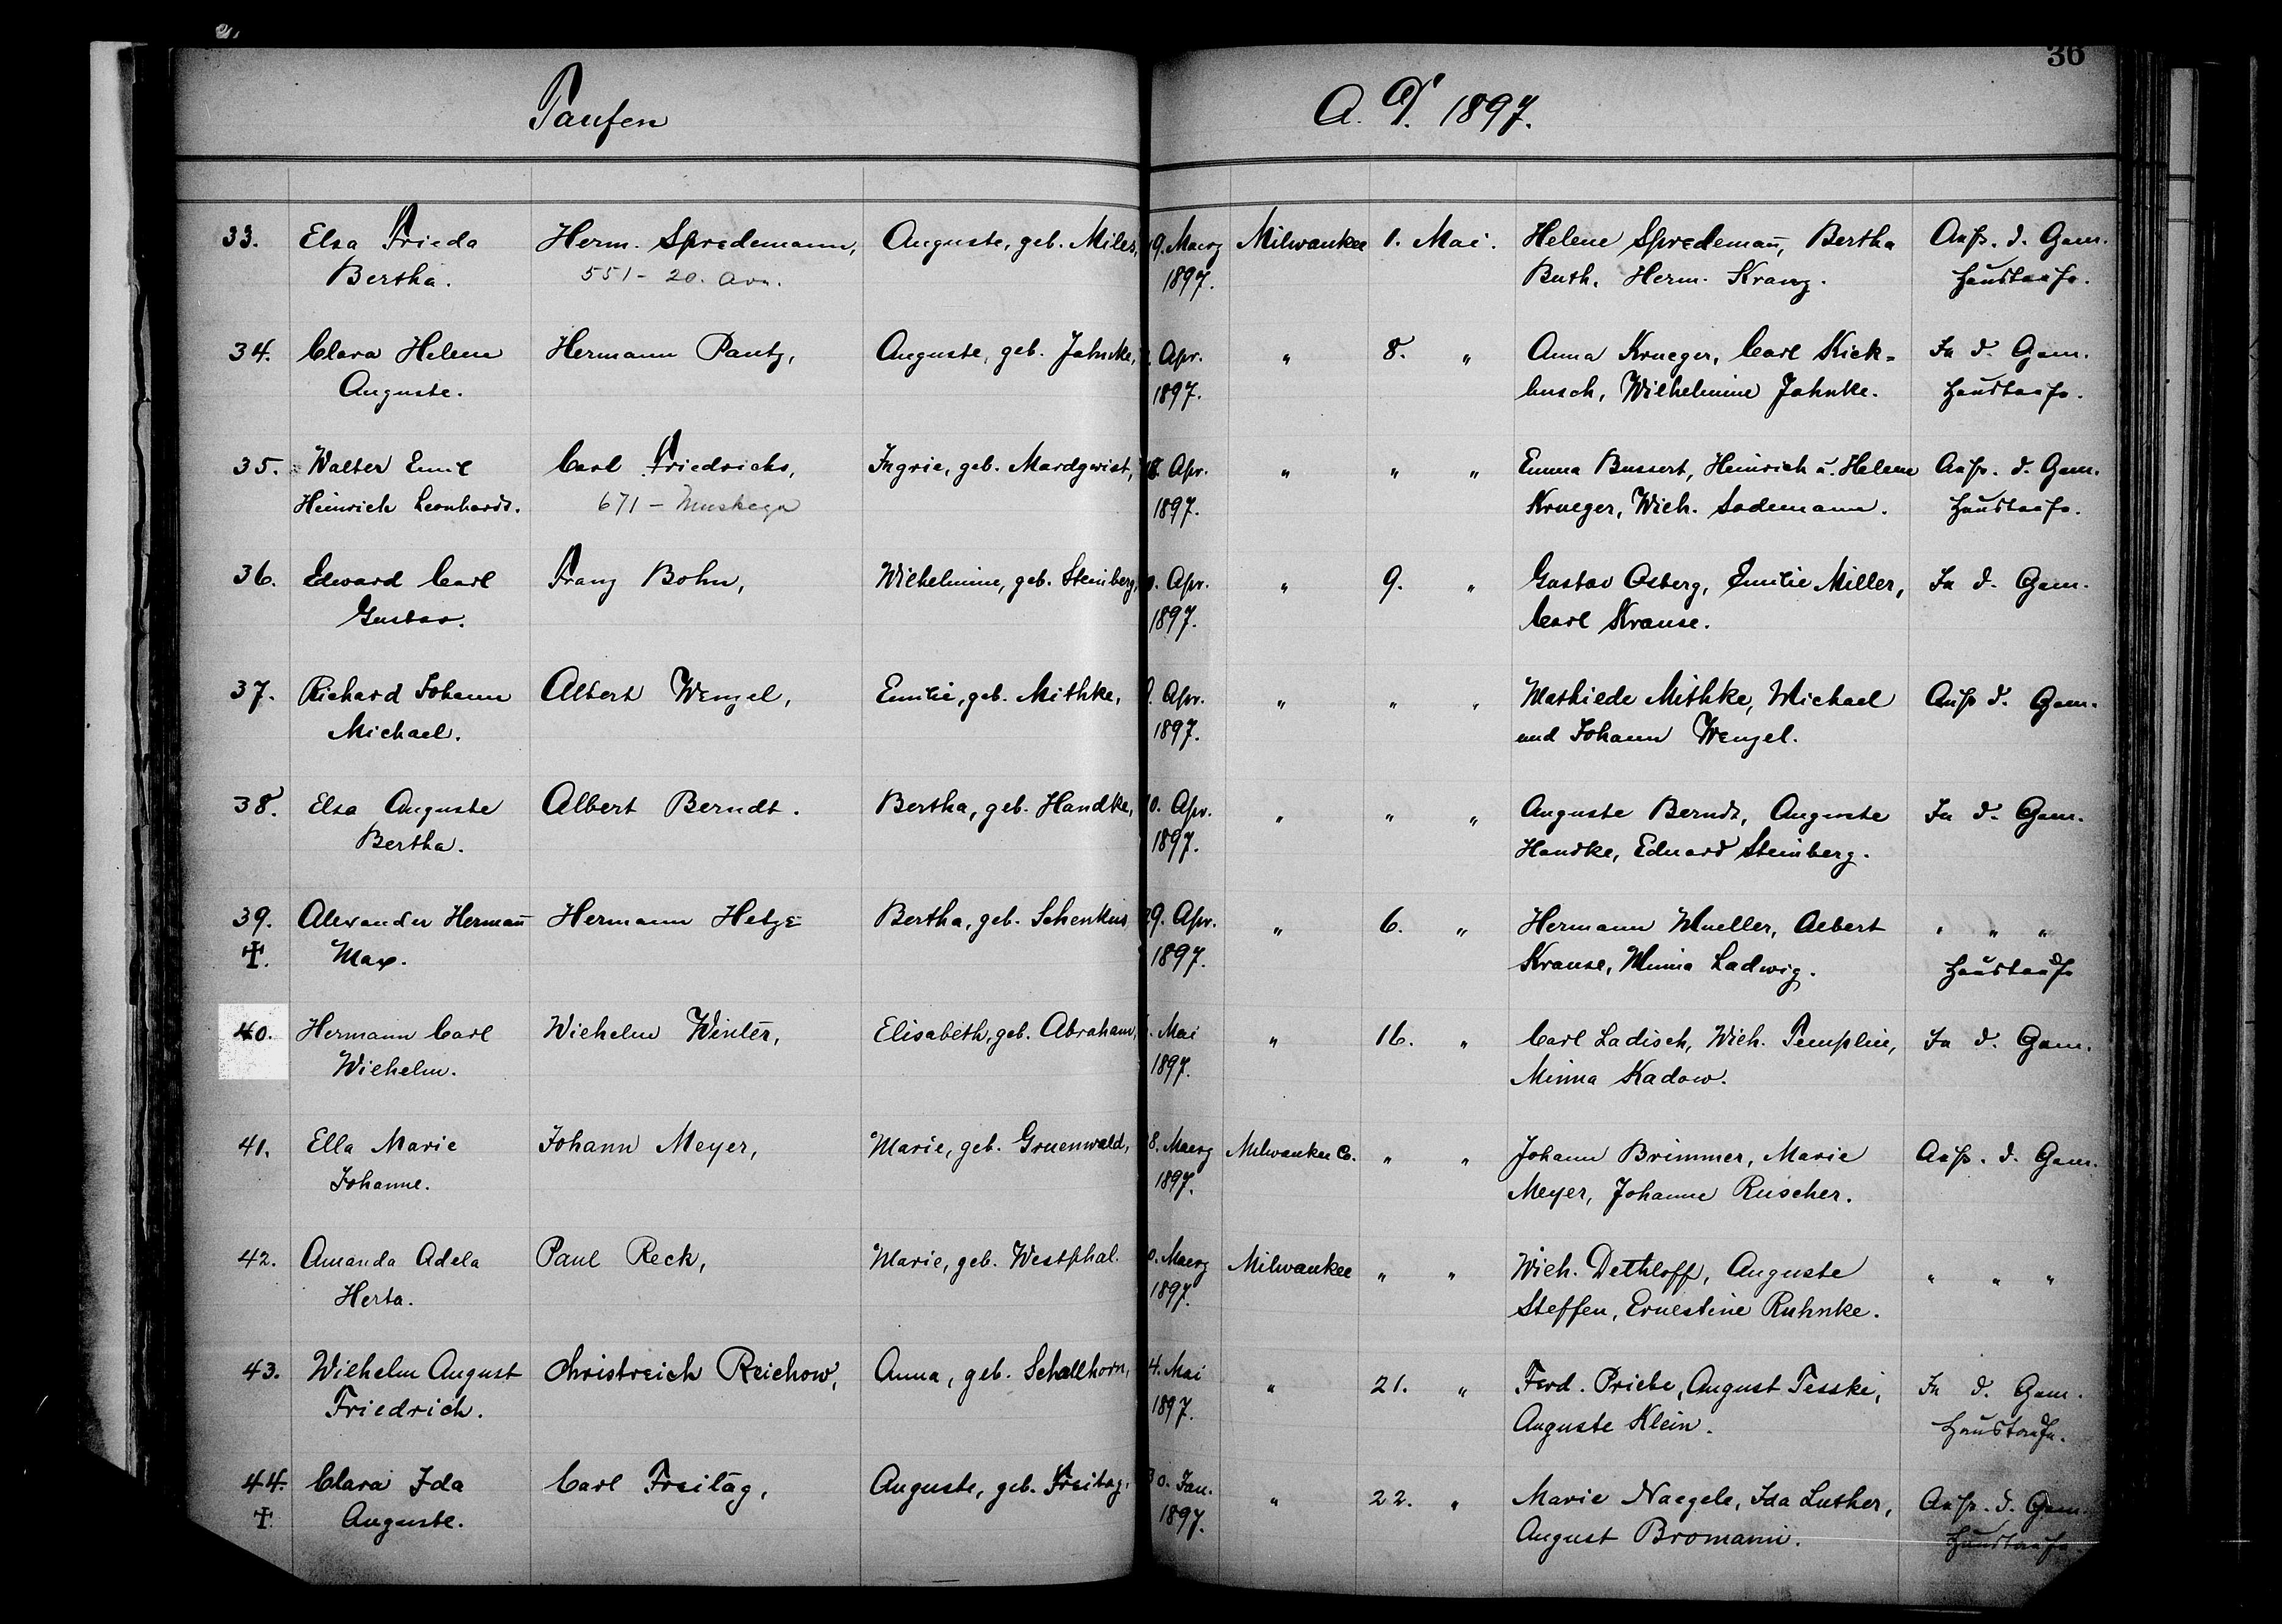 36
Taufen A. D. 1897.
33. Elsa Frieda Herm. Spredemann, Auguste, geb. Miles, 9. Maerz Milwaukee 1. Mai. Helene Spredemañ, Bertha Ausz. d. Gem.
Bertha. 551 - 20. Ave. 1897. Buth, Herm. Kranz. Haustaufe.
34. Clara Helene Hermann Pautz, Auguste, geb. Jahnke, Apr. " 8. " Anna Krueger, Carl Kick-
In d. Gem.
Auguste. 1897. busch, Wilhelmine Jahnke. Haustaufe.
35. Walter Emil Carl Friedrichs, Ingrie, geb. Mardqwist, 18. Apr. " " " Emma Bussert, Heinrich u. Helene Ausz. d. Gem.
Heinrich Leonhardt. 671 - Muskego 1897. Krueger, Wilh. Sademann. Haustaufe.
36. Edward Carl Franz Bohn, Wilhelmine, geb. Steinberg, Apr. " 9. " Gustav Osberg, Emilie Miller, In d. Gem.
Gustav. 1897. Carl Krause.
37. Richard Johann Albert Wenzel, Emilie, geb. Mithke, Apr. " " " Mathilde Mithke, Michael Ausz d. Gem.
Michael. 1897. und Johann Wenzel.
38. Elsa Auguste Albert Berndt. Bertha, geb. Handke, 10. Apr. " " " Auguste Berndt, Auguste In d. Gem.
Bertha. 1897. Handke, Eduard Steinberg.
39. Alexander Hermañ Hermann Hetze Bertha, geb. Schenkus 29. Apr. " 6. " Hermann Mueller, Albert " " "
Max. 1897. Krause, Minna Ladwig. Haustaufe
40. Hermann Carl Wilhelm Winter, Elisabeth, geb. Abraham, Mai " 16. " Carl Ladisch, Wilh. Templin, In d. Gem.
Wilhelm. 1897. Minna Kadow.
41. Ella Marie Johann Meyer, Marie, geb. Gruenwald, 8. Maerz Milwaukee Co. " " Johann Brimmer, Marie Ausz. d. Gem.
Johanne. 1897. Meyer, Johanne Ruscher.
42. Amanda Adela Paul Reck, Marie, geb. Westphal. 0. Maerz Milwaukee " " Wilh. Dethloff, Auguste " " "
Herta. 1897. Steffen, Ernestine Ruhnke.
43. Wilhelm August Christreich Reichow, Anna, geb. Schallhorn, 4. Mai " 21. " Ferd. Priebe, August Tesski, In d. Gem.
Friedrich. 1897. Auguste Klein. Haustaufe.
44. Clara Ida Carl Freitag, Auguste, geb. Freitag, 30. Jan. " 22. " Marie Naegele, Ida Luther, Ausz. d. Gem.
Auguste. 1897. August Bromann. Haustaufe.